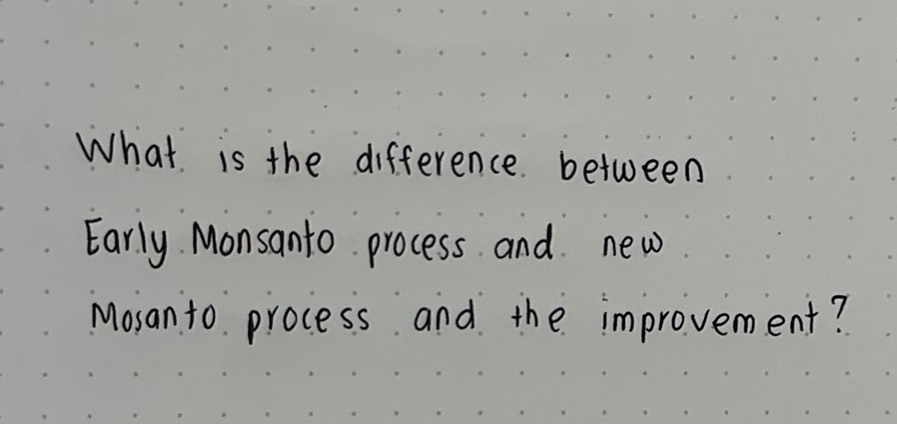 What is the difference between
Early Monsanto process and new
Mosanto process and the improvement?